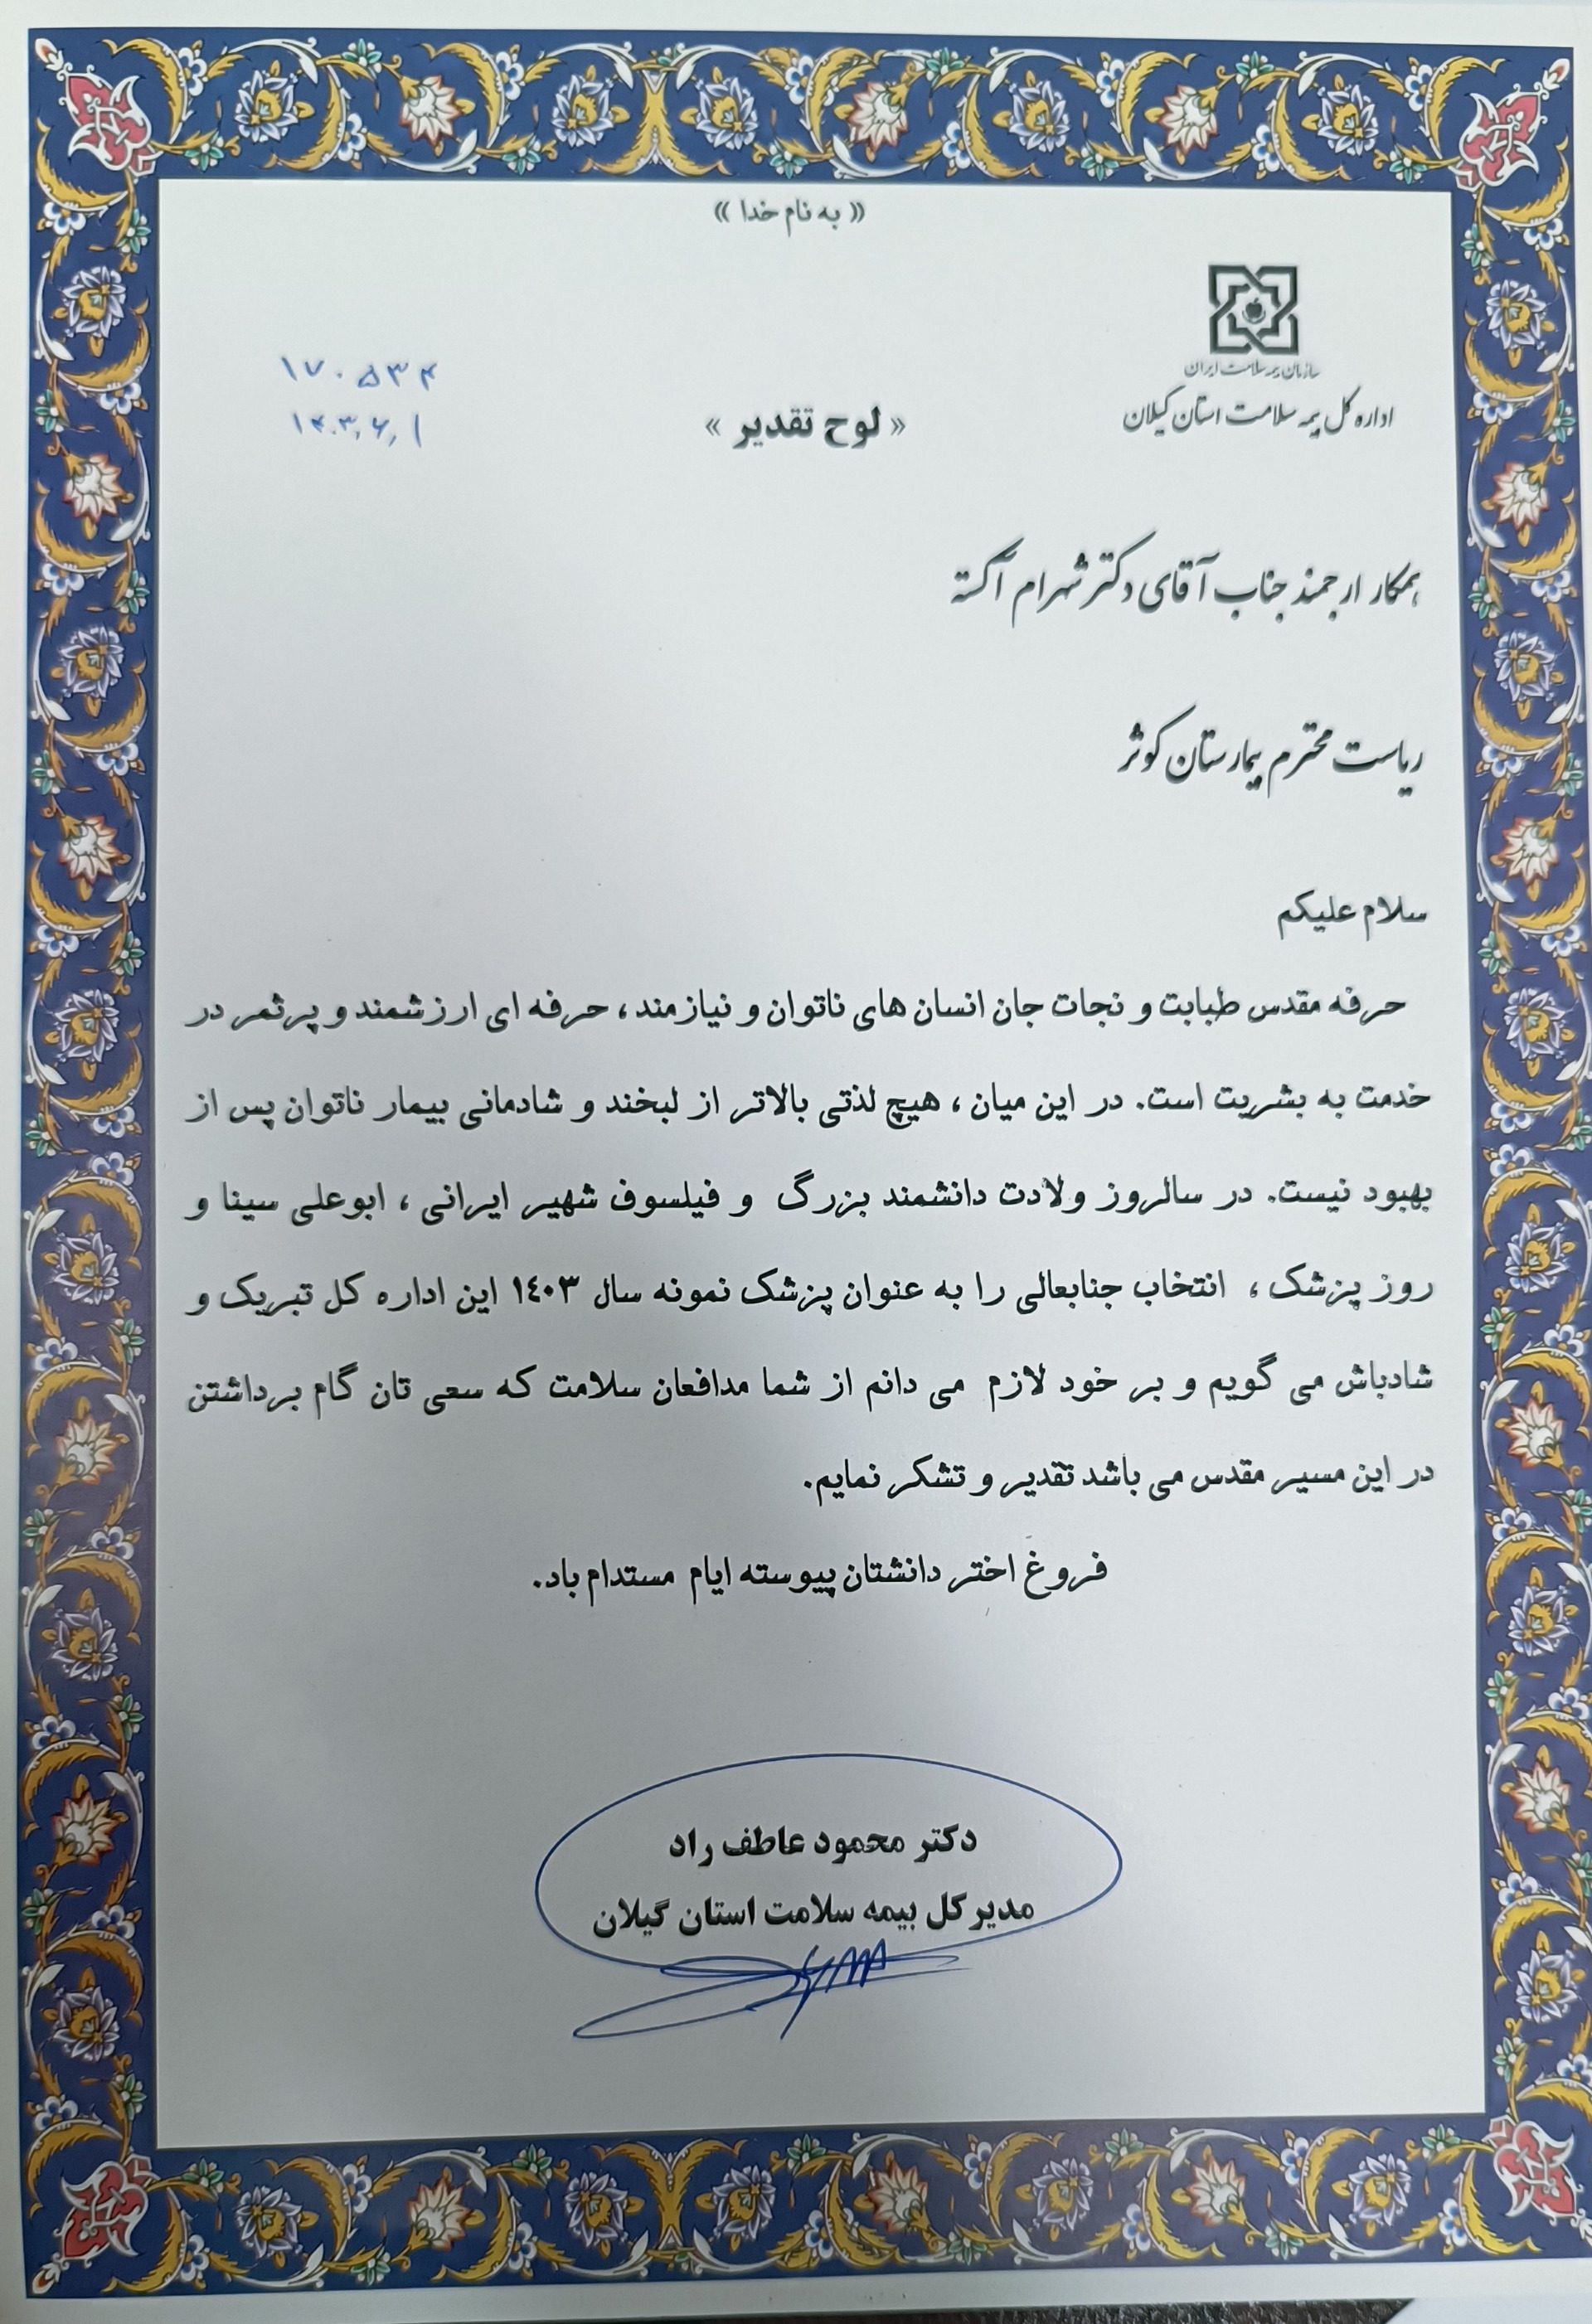 « به نام خدا »
سازمان بیمه سلامت ایران
اداره کل بیمه سلامت استان گیلان
۱۷۰۵۳۴
۱۴۰۳٫۶٫۱
« لوح تقدیر »
همکار ارجمند جناب آقای دکتر شهرام آگسته
ریاست محترم بیمارستان کوثر
سلام علیکم
حرفه مقدس طبابت و نجات جان انسان های ناتوان و نیازمند، حرفه ای ارزشمند و پرثمر در
خدمت به بشریت است. در این میان ، هیچ لذتی بالاتر از لبخند و شادمانی بیمار ناتوان پس از
بهبود نیست. در سالروز ولادت دانشمند بزرگ و فیلسوف شهیر ایرانی ، ابوعلی سینا و
روز پزشک ، انتخاب جنابعالی را به عنوان پزشک نمونه سال ۱۴۰۳ این اداره کل تبریک و
شادباش می گویم و بر خود لازم می دانم از شما مدافعان سلامت که سعی تان گام برداشتن
در این مسیر مقدس می باشد تقدیر و تشکر نمایم.
فروغ اختر دانشتان پیوسته ایام مستدام باد.
دکتر محمود عاطف راد
مدیرکل بیمه سلامت استان گیلان